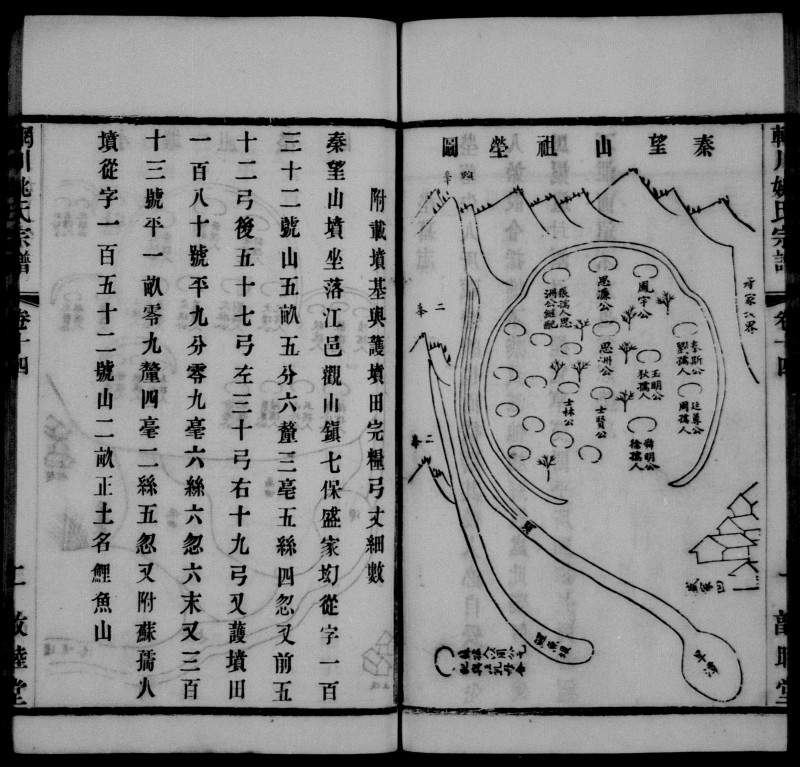 秦望山祖塋圖
二峯
二峯
思濂公
鳳宇公
張孺人思
洲公繼配
思洲公
秦斯公
劉孺人
玉明公
狄孺人
廷尊公
周孺人
士林公
士賢公
舜明公
徐孺人
敦睦堂
附載墳基與護墳田完糧弓丈細數
秦望山墳坐落江邑觀山鎮七保盛家㘭從字一百
三十二號山五畝五分六釐三毫五絲四忽又前五
十二弓後五十七弓左三十弓右十九弓又護墳田
一百八十號平九分零九毫六絲六忽六末又三百
十三號平一畝零九釐四毫二絲五忽又附蘇孺人
墳從字一百五十二號山二畝正土名鯉魚山
輞川姚氏宗譜
卷十四
二
敦睦堂